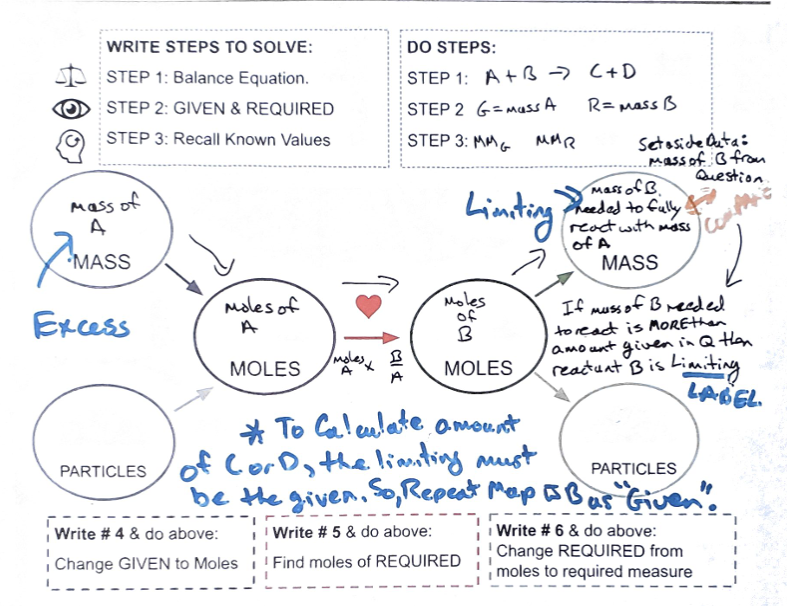 WRITE STEPS TO SOLVE:
STEP 1: Balance Equation.
STEP 2: GIVEN & REQUIRED
STEP 3: Recall Known Values
DO STEPS:
STEP 1: A + B → C + D
STEP 2 G = mass A R = mass B
STEP 3: MM_G MM_R
Set aside Data:
Mass of B from
Question
Compare
Mass of
A
MASS
Excess
Limiting
mass of B
needed to fully
react with mass
of A
MASS
Moles of
A
MOLES
moles A x B/A
Moles
of
B
MOLES
If mass of B needed
to react is MORE than
amount given in Q then
reactant B is Limiting
LABEL.
PARTICLES
PARTICLES
* To Calculate amount
of C or D, the limiting must
be the given. So, Repeat Map B as "Given".
Write # 4 & do above:
Change GIVEN to Moles
Write # 5 & do above:
Find moles of REQUIRED
Write # 6 & do above:
Change REQUIRED from
moles to required measure